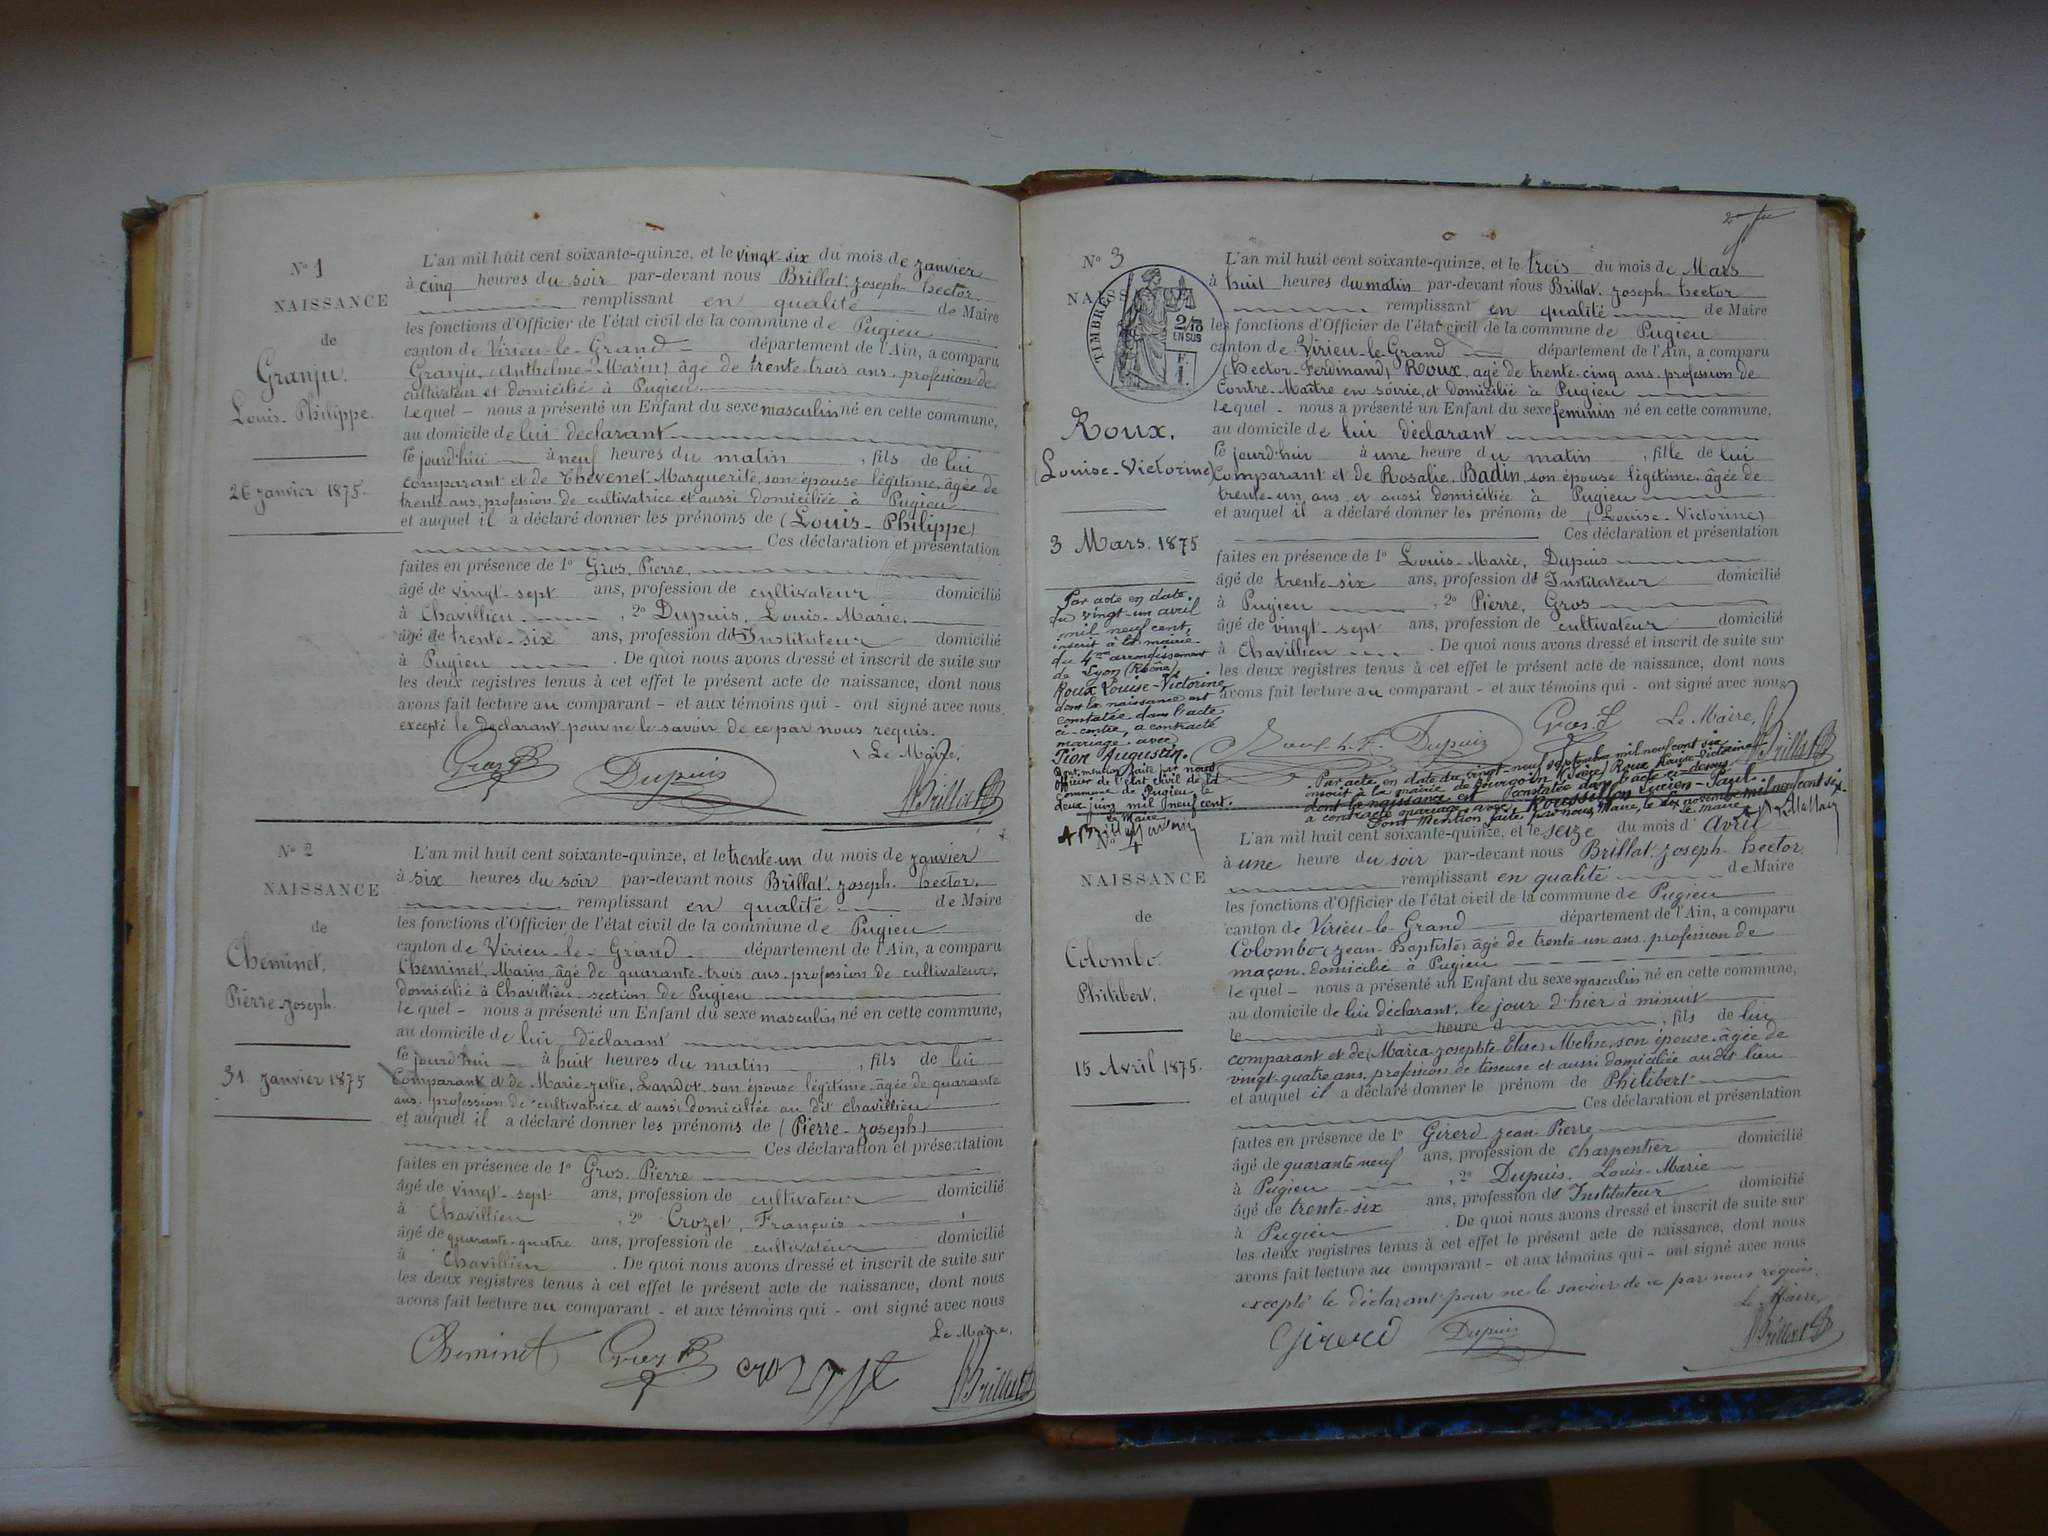 N° 1
NAISSANCE
de
Granju.
Louis-Philippe.
26 janvier 1875.
L'an mil huit cent soixante-quinze, et le vingt-six du mois de janvier
à cinq heures du soir par-devant nous Brillat-joseph-hector.
remplissant en qualité de Maire
les fonctions d'Officier de l'état civil de la commune de Pugieu
canton de Virieu-le-Grand département de l'Ain, a comparu
Granju, (Anthelme-Marin) âgé de trente-trois ans, profession de
cultivateur et domicilié à Pugieu
lequel - nous a présenté un Enfant du sexe masculin né en cette commune,
au domicile de lui déclarant
le jourd'hui à neuf heures du matin, fils de lui
comparant et de Thévenet-Marguerite, son épouse légitime, âgée de
trente ans, profession de cultivatrice et aussi domiciliée à Pugieu
et auquel il a déclaré donner les prénoms de (Louis-Philippe)
Ces déclaration et présentation
faites en présence de 1° Gros, Pierre,
âgé de vingt-sept ans, profession de cultivateur domicilié
à Chavillieu, 2° Dupuis, Louis-Marie,
âgé de trente-six ans, profession d'Instituteur domicilié
à Pugieu. De quoi nous avons dressé et inscrit de suite sur
les deux registres tenus à cet effet le présent acte de naissance, dont nous
avons fait lecture au comparant - et aux témoins qui - ont signé avec nous,
excepté le déclarant pour ne le savoir de ce par nous requis.
Le Maire,
Gros P Dupuis Brillat
N° 2
NAISSANCE
de
Cheminet.
Pierre-joseph.
31 janvier 1875
L'an mil huit cent soixante-quinze, et le trente-un du mois de janvier
à six heures du soir par-devant nous Brillat-joseph-hector.
remplissant en qualité de Maire
les fonctions d'Officier de l'état civil de la commune de Pugieu
canton de Virieu-le-Grand département de l'Ain, a comparu
Cheminet, Marin, âgé de quarante-trois ans, profession de cultivateur,
domicilié à Chavillieu, section de Pugieu
lequel - nous a présenté un Enfant du sexe masculin né en cette commune,
au domicile de lui déclarant
le jourd'hui à huit heures du matin, fils de lui
comparant et de Marie-julie, Landot, son épouse légitime, âgée de quarante
ans, profession de cultivatrice et aussi domiciliée au dit chavillieu
et auquel il a déclaré donner les prénoms de (Pierre-joseph)
Ces déclaration et présentation
faites en présence de 1° Gros-Pierre
âgé de vingt-sept ans, profession de cultivateur domicilié
à Chavillieu, 2° Crozet, François
âgé de quarante-quatre ans, profession de cultivateur domicilié
à Chavillieu. De quoi nous avons dressé et inscrit de suite sur
les deux registres tenus à cet effet le présent acte de naissance, dont nous
avons fait lecture au comparant - et aux témoins qui - ont signé avec nous
Le Maire,
Cheminet Gros P Brillat
N° 3
NAISS
TIMBRE
2/10
EN SUS
Roux.
(Louise-Victorine)
3 Mars. 1875
Par acte en date
du vingt-un avril
mil neuf cent,
inscrit à la mairie
du 4me arrondissement
de Lyon (Rhône)
Roux Louise-Victorine
dont la naissance est
constatée dans l'acte
ci-contre, a contracté
mariage avec
Pion Augustin.
Dont mention faite par nous
Officier de l'état civil de la
commune de Pugieu, le
deux juin mil neuf cent.
Le Maire
L'an mil huit cent soixante-quinze, et le trois du mois de Mars
à huit heures du matin par-devant nous Brillat-joseph-hector
remplissant en qualité de Maire
les fonctions d'Officier de l'état civil de la commune de Pugieu
canton de Virieu-le-Grand département de l'Ain, a comparu
(hector-Ferdinand) Roux, âgé de trente-cinq ans, profession de
Contre-Maître en soirie, et domicilié à Pugieu
lequel - nous a présenté un Enfant du sexe feminin né en cette commune,
au domicile de lui déclarant
le jourd'hui à une heure du matin, fille de lui
comparant et de Rosalie, Badin, son épouse légitime, âgée de
trente-un ans et aussi domiciliée à Pugieu
et auquel il a déclaré donner les prénoms de (Louise-Victorine)
Ces déclaration et présentation
faites en présence de 1° Louis-Marie, Dupuis
âgé de trente-six ans, profession d'Instituteur domicilié
à Pugieu, 2° Pierre, Gros
âgé de vingt-sept ans, profession de cultivateur domicilié
à Chavillieu. De quoi nous avons dressé et inscrit de suite sur
les deux registres tenus à cet effet le présent acte de naissance, dont nous
avons fait lecture au comparant - et aux témoins qui - ont signé avec nous
Le Maire,
Roux h. F. Dupuis Gros P Brillat
Par acte en date du vingt-neuf septembre mil neuf cent six
inscrit à la mairie de Bourgoin (Isère) Roux Louise-Victorine
dont la naissance est constatée dans l'acte ci-dessus
a contracté mariage avec Roussillon Lucien-Paul.
Dont Mention faite par nous, Maire, le dix novembre mil neuf cent six.
Le Maire
N° 4
NAISSANCE
de
Colombo.
Philibert.
15 Avril 1875.
L'an mil huit cent soixante-quinze, et le seize du mois d'Avril
à une heure du soir par-devant nous Brillat-joseph-hector.
remplissant en qualité de Maire
les fonctions d'Officier de l'état civil de la commune de Pugieu
canton de Virieu-le-Grand département de l'Ain, a comparu
Colombo (jean-Baptiste) âgé de trente-un ans, profession de
maçon, domicilié à Pugieu
lequel - nous a présenté un Enfant du sexe masculin né en cette commune,
au domicile de lui déclarant, le jour d'hier à minuit
le à heure d, fils de lui
comparant et de (Maria-josephte-Elise) Melin, son épouse, âgée de
vingt-quatre ans, profession de tisseuse et aussi domiciliée au dit lieu
et auquel il a déclaré donner le prénom de Philibert
Ces déclaration et présentation
faites en présence de 1° Girerd jean-Pierre
âgé de quarante neuf ans, profession de charpentier domicilié
à Pugieu, 2° Dupuis, Louis-Marie
âgé de trente-six ans, profession d'Instituteur domicilié
à Pugieu. De quoi nous avons dressé et inscrit de suite sur
les deux registres tenus à cet effet le présent acte de naissance, dont nous
avons fait lecture au comparant - et aux témoins qui - ont signé avec nous
excepté le déclarant pour ne le savoir de ce par nous requis.
Le Maire,
Girerd Dupuis Brillat